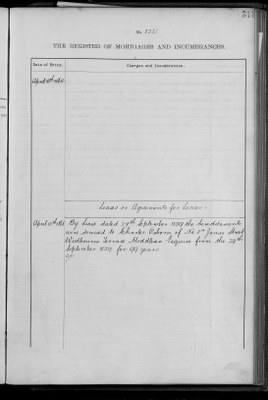 No.
THE REGISTER OF MORTGAGES AND INCUMBRANCES.
Date of Entry.
Charges and Incumbrances.
April
Leases or Agreements for Leases.
April By Lease dated 29th September 1829 the hereditaments
were demised to Charles Osborn of No 5 James Street
Westbourne Terrace Middlesex Esquire from the 29th
September 1829 for years